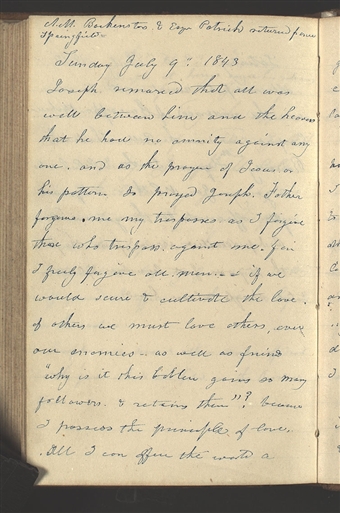 & Esqr Patrick returned from
Springfield
Sunday July 9th. 1843
Joseph remarked that all was
well between him and the heavens
that he had no enmity against any
one. and as the prayer of Jesus or
his pattern so prayed Joseph. Father
forgive me my trespasses as I forgive
those who trespass against me. for
I freely forgive all men. & if we
would secure & cultivate the love
of others we must love others, even
our enemies as well as friends
"why is it this babler gains so many
followers. & retains them"? because
I possess the principle of love.
All I can offer the world a